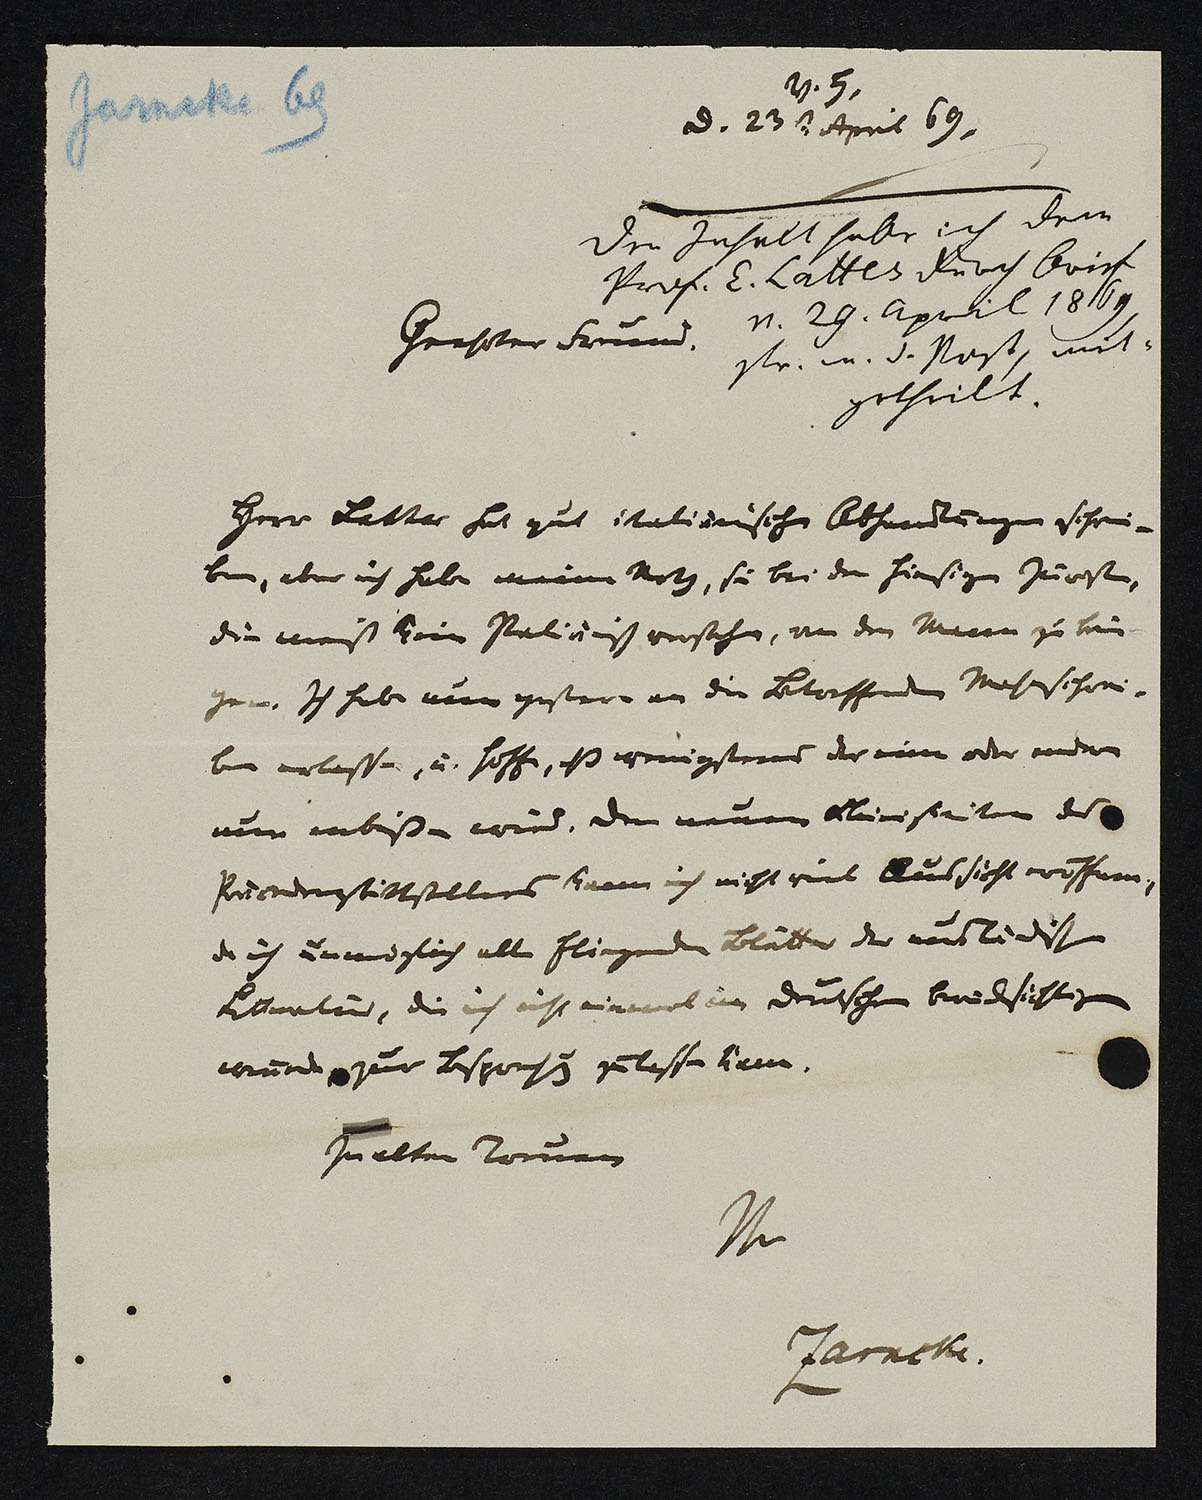 Zarncke 69
v. 5.
d. 23 t April 69.
Den Inhalt habe ich dem
Prof. E. Lattes durch Brief
v. 29. April 1869,
str. m. d. Post, mit-
getheilt.
Geehrter Freund.
Herr Lattes hat gut italiänische Abhandlungen schrei-
ben, aber ich habe meine Noth, sie bei den hiesigen Juristen,
die meist kein Italiänisch verstehen, an den Mann zu brin-
gen. Ich habe nun gestern an die Betreffenden Mahnschrei-
ben erlassen, u. hoffe, daß wenigstens der eine oder andere
nun anbeißen wird. Den neuen Kleinigkeiten des
kann ich nicht viel Aussicht eröffnen,
da ich unmöglich alle fliegenden Blätter der ausländischen
Litteratur, die ich nicht einmal im Deutschen berücksichtigen
würde, zur Besprechung zulassen kann.
In alter Treue
Ihr
Zarncke.